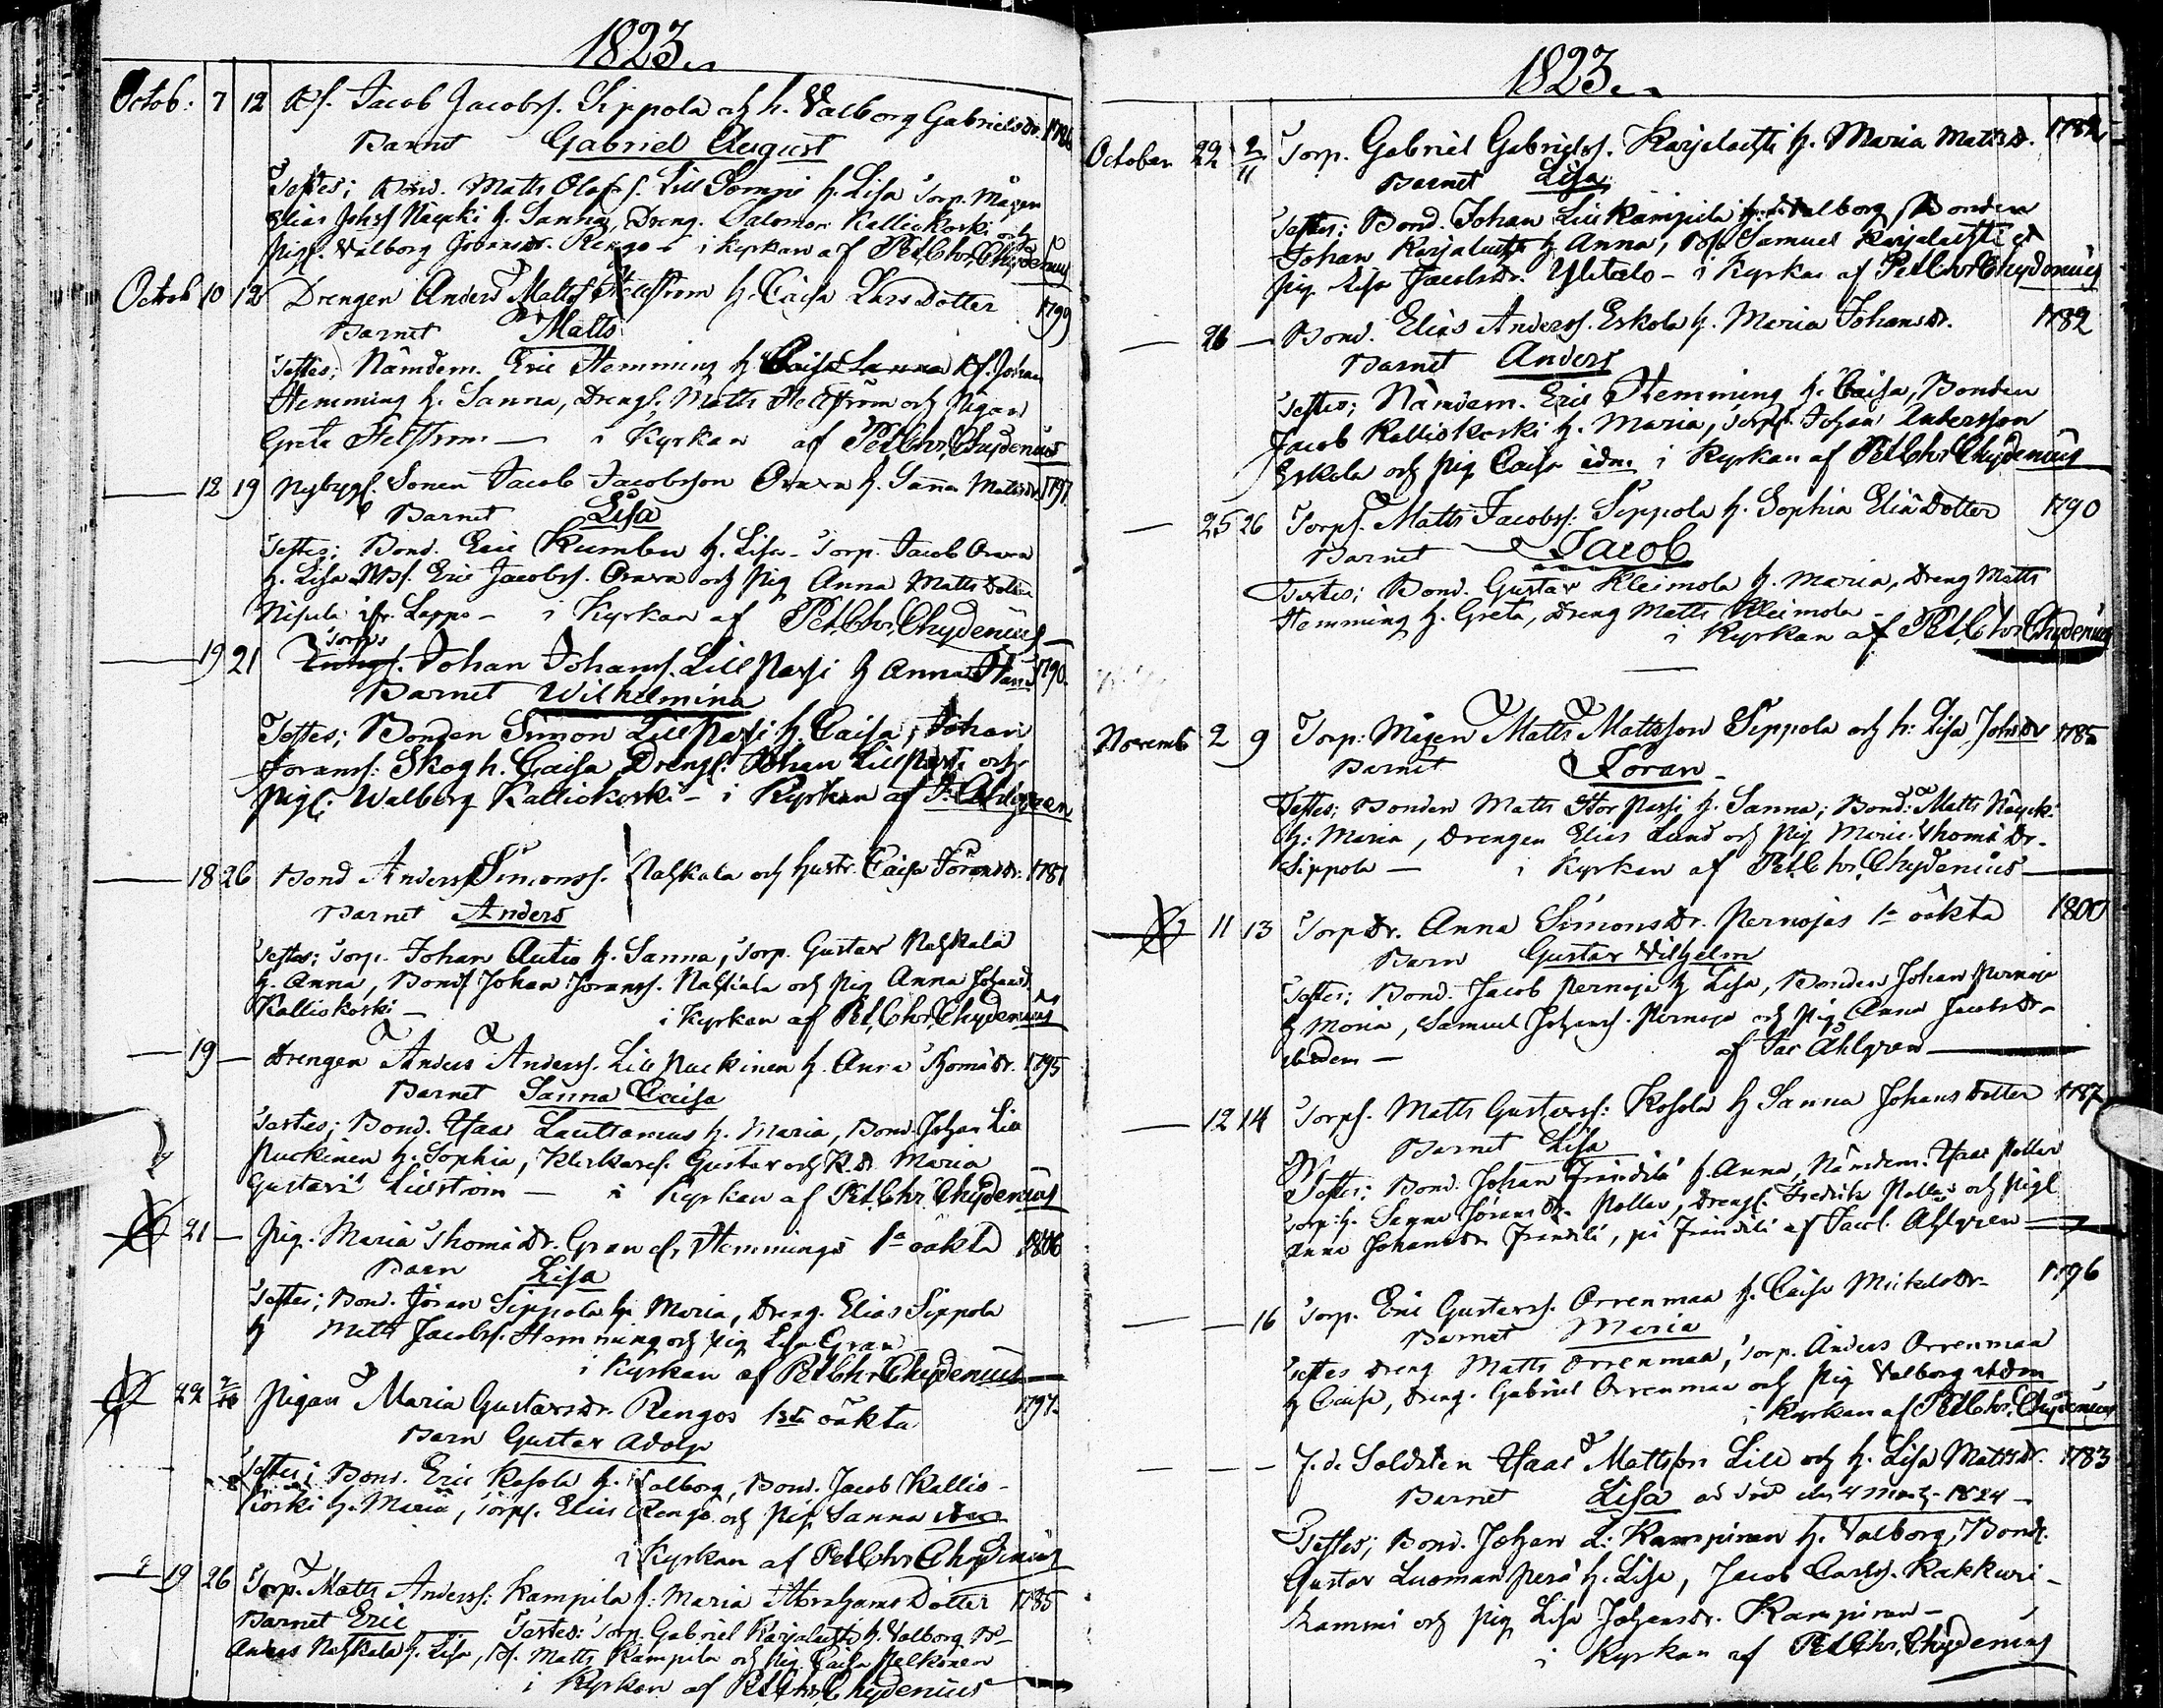 1823
Octob: 7 12 Bs. Jacob Jacobss. Sippola och h. Valborg Gabrielsdr. 1786
Barnet Gabriel August
Testes; Bond. Matts Olofs. Lill Sompi h. Lisa Torp. Mågen
Elias Johss Näyski h. Sanna, Dreng. Salomon Kalliokoski och
Pigs. Valborg Göransdr. Rengo - i Kyrkan af Pet. Chr. Chydenius
Octob 10 12 Drengen Anders Mattss Hellström h. Caisa Lars Dotter 1799
Barnet Matts
Testes; Nämdem. Eric Hemming h. Caisa Bs. Johan
Hemming h. Sanna, Drengs. Matts Hellström och Pigan
Greta Hellström - i Kyrkan af Pet. Chr. Chydenius
12 19 Nybygg. Sonen Jacob Jacobsson Orava h. Sanna Mattsdr. 1797.
Barnet Lisa
Testes; Bond. Eric h. Lisa - Torp. Jacob Orava
h. Lisa, Bs. Eric Jacobss. Orava och Pig Anna Matts Dotter
Nisula ifr. Lappo - i Kyrkan af Pet. Chr. Chydenius
Torps
19 21 Johan Johanss. Lill Passi h Anna 1790.
Barnet Wilhelmina
Testes; Bonden Simon Lill Passi h. Caisa, Johan
Joranss: Skog h. Caisa Drengs: Johan Lill Passi och
Pigs: Walborg Kalliokoski - i Kyrkan af J. Ahlgren
18 26 Bond Anders Simonss. Nahkala och hustr. Caisa Göransdr. 1781
Barnet Anders
Testes; Torp. Johan Autio h. Sanna, Torp. Gustav Nahkala
h. Anna, Bonds Johan Joranss. Nahkala och Pig Anna Johansd.
Kalliokoski - i Kyrkan af Pet. Chr. Chydenius
19 - Drengen Anders Anderss. Lill Puckinen h. Anna Thomædr. 1795
Barnet Sanna Caisa
Testes; Bond. Isaac Lauttamus h. Maria, Bond. Johan Lill
Puckinen h. Sophia, Klockares. Gustav och K.d. Maria
Gustava Lilström - i Kyrkan af Pet. Chr. Chydenius
21 - Pig. Maria Thomædr. Gran fr. Hemmings 1a oäkta
Barn Lisa
Testes; Bond. Jöran Sippola h. Maria, Dreng. Elias Sippola
h Matts Jacobss. Hemming och Pig Lisa Gran
i Kyrkan af Pet. Chr. Chydenius
22 2/10 Pigan Maria Gustavsdr. Rengos 1sta oäkta 1797.
Barn Gustav Adolp
Testes; Bond. Eric Kosola h. Valborg, Bond. Jacob Kallio-
koski h. Maria, Torps. Elias Rengo och Pig. Sanna
i Kyrkan af Pet. Chr. Chydenius
19 26 Torp. Matts Anderss: Kampila h: Maria Abrahams Dotter 1785
Barnet Eric Testes: Torp. Gabriel Karjalahti h. Valborg B-
Anders Nahkala h. Lisa, Bs. Matts Kampila och Pig. Caisa Pelkonen
i Kyrkan af Pet. Chr. Chydenius
1823
October 22 2/11 Torp. Gabriel Gabrielss. Karjalahti h. Maria Mattsd. 1782
Barnet Lisa
Testes; Bond. Johan Kampila h. Valborg, Bonden
Johan Karjalahti h Anna, Bs. Samuel Karjalahti och
Pig Lisa Jacobsdr. Ylitalo - i Kyrkan af Pet. Chr. Chydenius
26 - Bond. Elias Anderss. Eskola h. Maria Johansdr. 1782
Barnet Anders
Testes; Nämdem. Eric Hemming h. Caisa, Bonden
Jacob Kalliokoski h. Maria, Torps. Johan Andersson
Eskola och Pig Caisa idm. i Kyrkan af Pet. Chr. Chydenius
25 26 Torps. Matts Jacobss: Sippola h. Sophia Eliæ Dotter 1790
Barnet Jacob
Testes; Bond. Gustav Kleimola h. Maria, Dreng Matts
Hemming h. Greta, Dreng Matts Kleimola -
i Kyrkan af Pet. Chr. Chydenius
Novemb 2 9 Torp: Mågen Matts Mattsson Sippola och h: Lisa Johsdr 1785
Barnet Joran -
Testes; Bonden Matts Stor Passi h. Sanna; Bond: Matts Näyck:
h: Maria, Drengen Elias Lund och Pig Maria Thomædr.
Sippola - i Kyrkan af Pet. Chr. Chydenius
11 13 Torpdr. Anna Simonsdr. Pernajas 1a oäkta 1800
Barn Gustav Wilhelm
Testes; Bond. Jacob Pernaja h Lisa, Bonden Johan Pernaja
h Maria, Samuel Johanss. Pernaja och Pig Anna Jacobsdr -
ibidem - af Jac Ahlgren
12 14 Torps. Matts Gustavss: Kosola h Sanna Johans Dotter 1787
Barnet Lisa
Testes; Bond. Johan Frändilä h. Anna, Nämdem. Isaac Pollar
Torp:h. Sanna Göransdr. Pollar, Drengs. Fredrik Pollar och Pigs
Anna Johansdr Frändilä, på Frändilä af Jacob. Ahlgren
16 Torp. Eric Gustavss. Orrenmaa h. Caisa Mickelsdr - 1796
Barnet Maria
Testes Dreng Matts Orrenmaa, Torp. Anders Orrenmaa
h Caisa, Dreng. Gabriel Orrenmaa och Pig Valborg ibdm
i Kyrkan af Pet. Chr. Chydenius
- - F.d. Soldaten Isaac Mattsson Lill och h. Lisa Mattsdr. 1783
Barnet Lisa 1824 -
Testes; Bond. Johan L: Kampinen h. Valborg, Bond.
Gustav Luoman Perä h. Lisa, Jacob Carlss. Kakkuri-
lammi och Pig Lisa Johansdr. Kampinen -
i Kyrkan af Pet. Chr. Chydenius